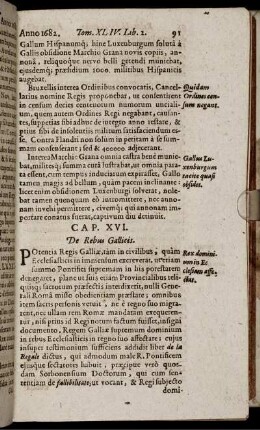 Anno 1682. Tom. XLIV. Lib. 2. 91
Gallum Hispanumq; hinc Luxenburgum soluta à
Gallis obsidione Marchio Grana novis copiis, an-
nonâ, reliquoque nervo belli gerendi munichat,
ejusdemq; præsidium 1000. militibus Hispanicis
augebat.
Bruxellis interea Ordinibus convocatis, Cancel-
larius nomine Regis proponebat, ut consentirent
in censum decies centenorum numorum uncial-
um, quem autem Ordines Regi negabant, causan-
tes, suppetias sibi adhuc de integro anno restare, &
pro sibi de insolentiis militum satisfaciendum es-
se. Contra Flandri non solum in peritam à se sum-
mam consenserant; sed & 400000 adjecerant.
Quidam
Ordines cen-
sum negant.
Interea Marchio Grana omnia castra bene munie-
bat, milites q; summa cura lustrabat, ut omnia para-
ta essent, cum tempus induciarum exspirasset, Gallo
tamen magis ad bellum, quàm pacem inclinante:
licet enim obsidionem Luxenburgi solverat, nole-
bat tamen quenquam in urbem venire, nec an-
nonam invehi permittere, civemq; qui annonam
importare conatus fuerat, captivum diu detinuit.
Gallus Lu-
xenburgum
tacite quasi
obsidet.
CAP. XVI.
De Rebus Gallicis.
POtentia Regis Galliæ, tam in civilibus, quàm
Ecclesiasticis in immensum excreverat, utetiam
summo Pontifici supremam in his potestatem
denegaret, plane ut suis etiam Provincialibus tesqui-
coq; sacrorum præfectis interdixerit, nulli Gene-
rali Romæ misso obedientiam præstare; omnibus
item sacris personis vetuit, ne è regno suo migra-
rent, nec ullam rem Romæ mandatam exequeren-
tur, nisi prius id Regi notum factum fuisset, insigni
documento, Regem Galliæ supremum dominium
in rebus Ecclesiasticis in regno suo affectare; cujus
insuper testimonium sufficiens addidit liber de la
Regale dictus, qui admodum malè R. Pontificem
ejusque sectatores habuit; præcipuè verò quos-
dam Sorbonensium Doctorum, qui cum sen-
tentiam de fallibilitate, ut vocant, & Regi subjecto
Rex domini-
um in Ec
clesiam affe-
ctat.
domi-